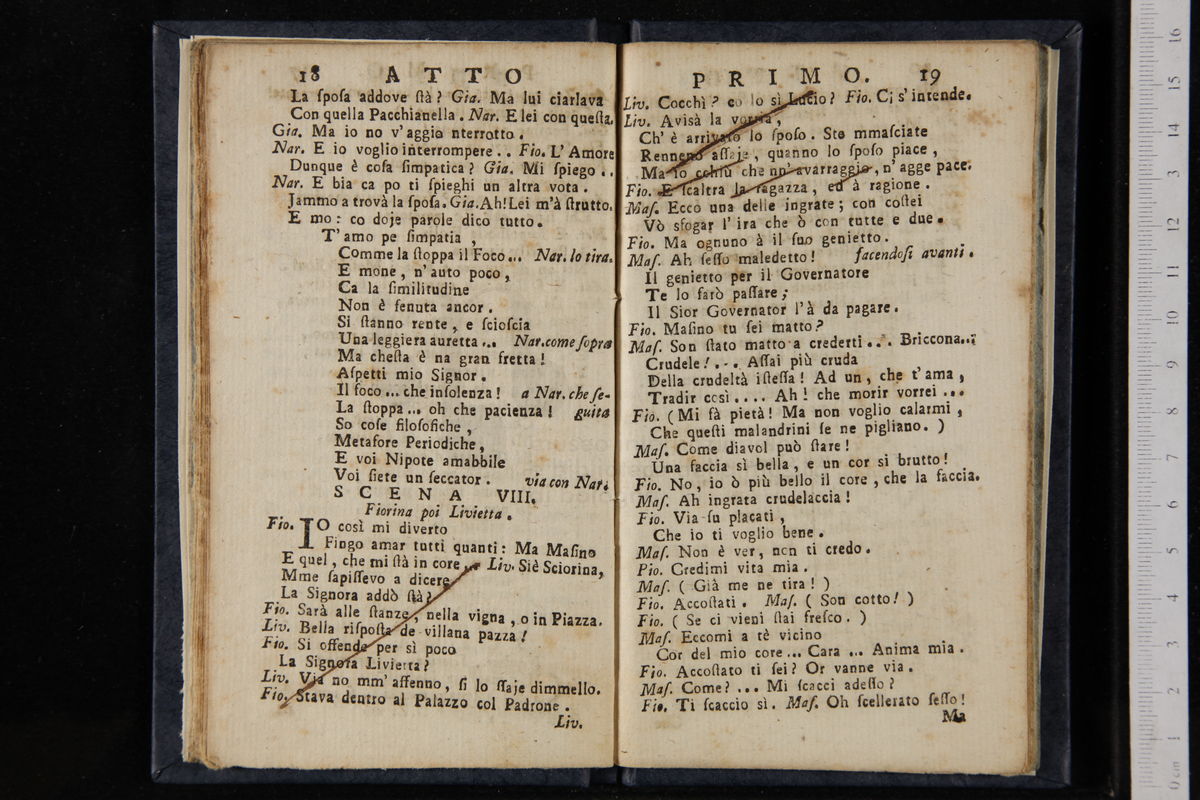 18 ATTO
La ſpoſa addove ſtà? Gia. Ma lui ciarlava
Con quella Pacchianella. Nar. E lei con queſta.
Gia. Ma io no v'aggio nterrotto.
Nar. E io voglio interrompere.. Fio. L'Amore
Dunque è coſa ſimpatica? Gia. Mi ſpiego..
Nar. E bia ca po ti ſpieghi un altra vota.
Jammo a trovà la ſpoſa. Gia. Ah! Lei m'à ſtrutto.
E mo: co doje parole dico tutto.
T'amo pe ſimpatia,
Comme la ſtoppa il Foco... Nar. lo tira.
E mone, n'auto poco,
Ca la ſimilitudine
Non è fenuta ancor.
Si ſtanno rente, e ſcioſcia
Una leggiera auretta... Nar. come ſopra
Ma cheſta è na gran fretta!
Aſpetti mio Signor.
Il foco... che inſolenza! a Nar. che ſe-
La ſtoppa... oh che pacienza! guita
So coſe filoſofiche,
Metafore Periodiche,
E voi Nipote amabbile
Voi ſiete un ſeccator. via con Nar.
SCENA VIII.
Fiorina poi Livietta.
Fio. IO così mi diverto
Fingo amar tutti quanti: Ma Maſino
E quel, che mi ſtà in core... Liv. Siè Sciorina,
Mme ſapiſſevo a dicere
La Signora addò ſtà?
Fio. Sarà alle ſtanze, nella vigna, o in Piazza.
Liv. Bella riſpoſta de villana pazza!
Fio. Si offende per sì poco
La Signora Livietta?
Liv. Via no mm'affenno, ſi lo ſſaje dimmello.
Fio. Stava dentro al Palazzo col Padrone.
Liv.
PRIMO. 19
Liv. Cocchì? co lo sì Lucio? Fio. Ci s'intende.
Liv. Avisà la vorria,
Ch'è arrivato lo ſpoſo. Ste mmaſciate
Renneno aſſaje, quanno lo ſpoſo piace,
Ma io cchiù che nn'avarraggio, n'agge pace.
Fio. E ſcaltra la ragazza, ed à ragione.
Maſ. Ecco una delle ingrate; con coſtei
Vò sfogar l'ira che ò con tutte e due.
Fio. Ma ognuno à il ſuo genietto.
Maſ. Ah ſeſſo maledetto! facendoſi avanti.
Il genietto per il Governatore
Te lo farò paſſare;
Il Sior Governator l'à da pagare.
Fio. Maſino tu ſei matto?
Maſ. Son ſtato matto a crederti... Briccona...
Crudele!... Aſſai più cruda
Della crudeltà iſteſſa! Ad un, che t'ama,
Tradir così.... Ah! che morir vorrei...
Fio. (Mi fà pietà! Ma non voglio calarmi,
Che queſti malandrini ſe ne pigliano.)
Maſ. Come diavol può ſtare!
Una faccia sì bella, e un cor sì brutto!
Fio. No, io ò più bello il core, che la faccia.
Maſ. Ah ingrata crudelaccia!
Fio. Via ſu placati,
Che io ti voglio bene.
Maſ. Non è ver, non ti credo.
Fio. Credimi vita mia.
Maſ. (Già me ne tira!)
Fio. Accoſtati. Maſ. (Son cotto!)
Fio. (Se ci vieni ſtai freſco.)
Maſ. Eccomi a tè vicino
Cor del mio core... Cara... Anima mia.
Fio. Accoſtato ti ſei? Or vanne via.
Maſ. Come?... Mi ſcacci adeſſo?
Fio. Ti ſcaccio sì. Maſ. Oh ſcellerato ſeſſo!
Ma
0 cm 1 2 3 4 5 6 7 8 9 10 11 12 13 14 15 16